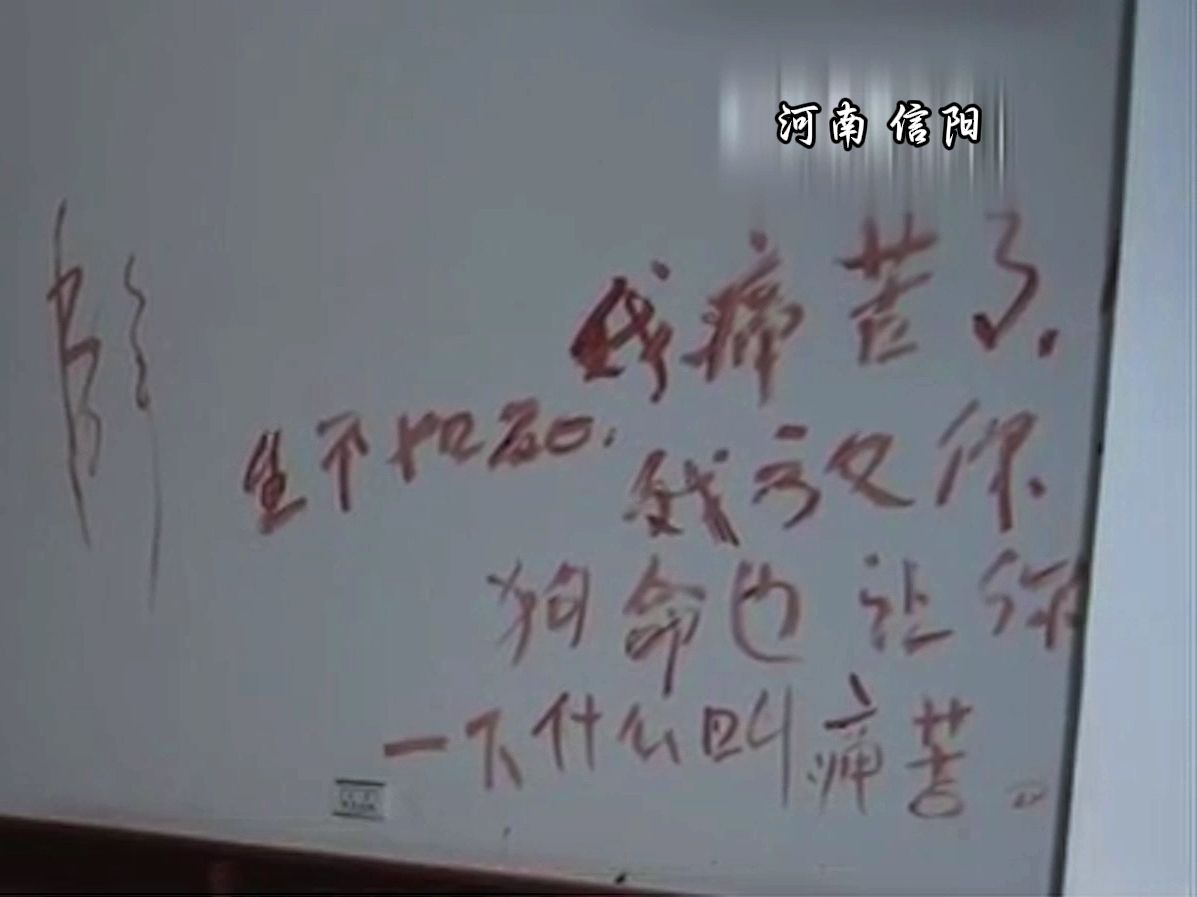 河南 信阳
我痛苦了.
生不如死.
我 你.
狗命也让你
一下什么叫痛苦。